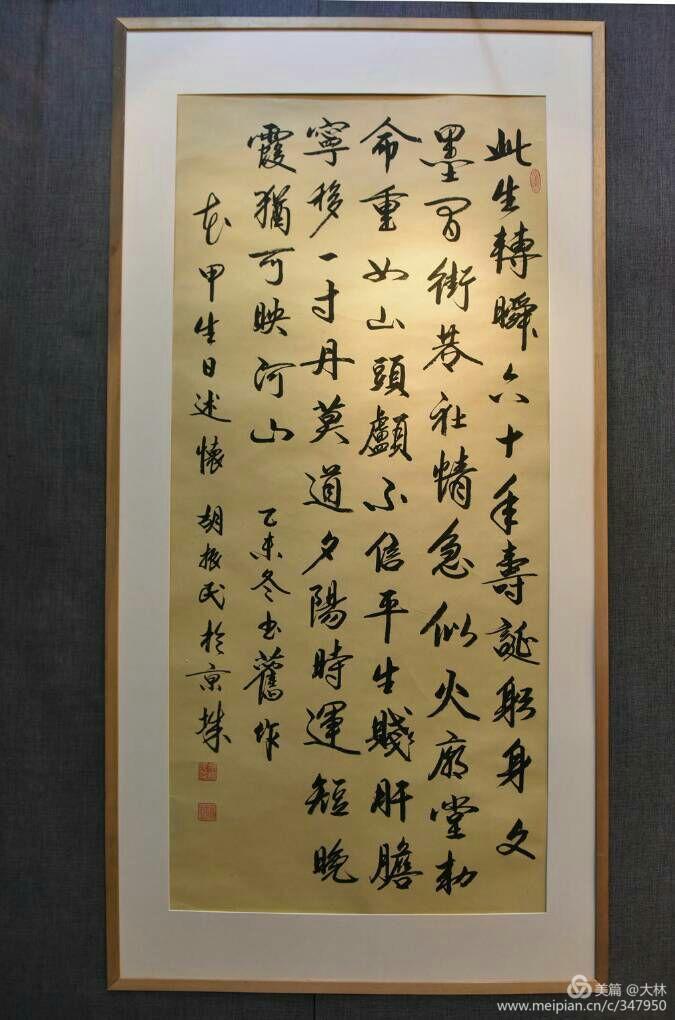 此生轉瞬六十年壽誕躬身文
墨間街巷社情急似火廟堂勅
命重如山頭顱不信平生賤肝膽
寧移一寸丹莫道夕陽時運短晚
霞猶可映河山 乙未冬書舊作
花甲生日述懷 胡振民於京城
美篇 @大林
www.meipian.cn/c/347950